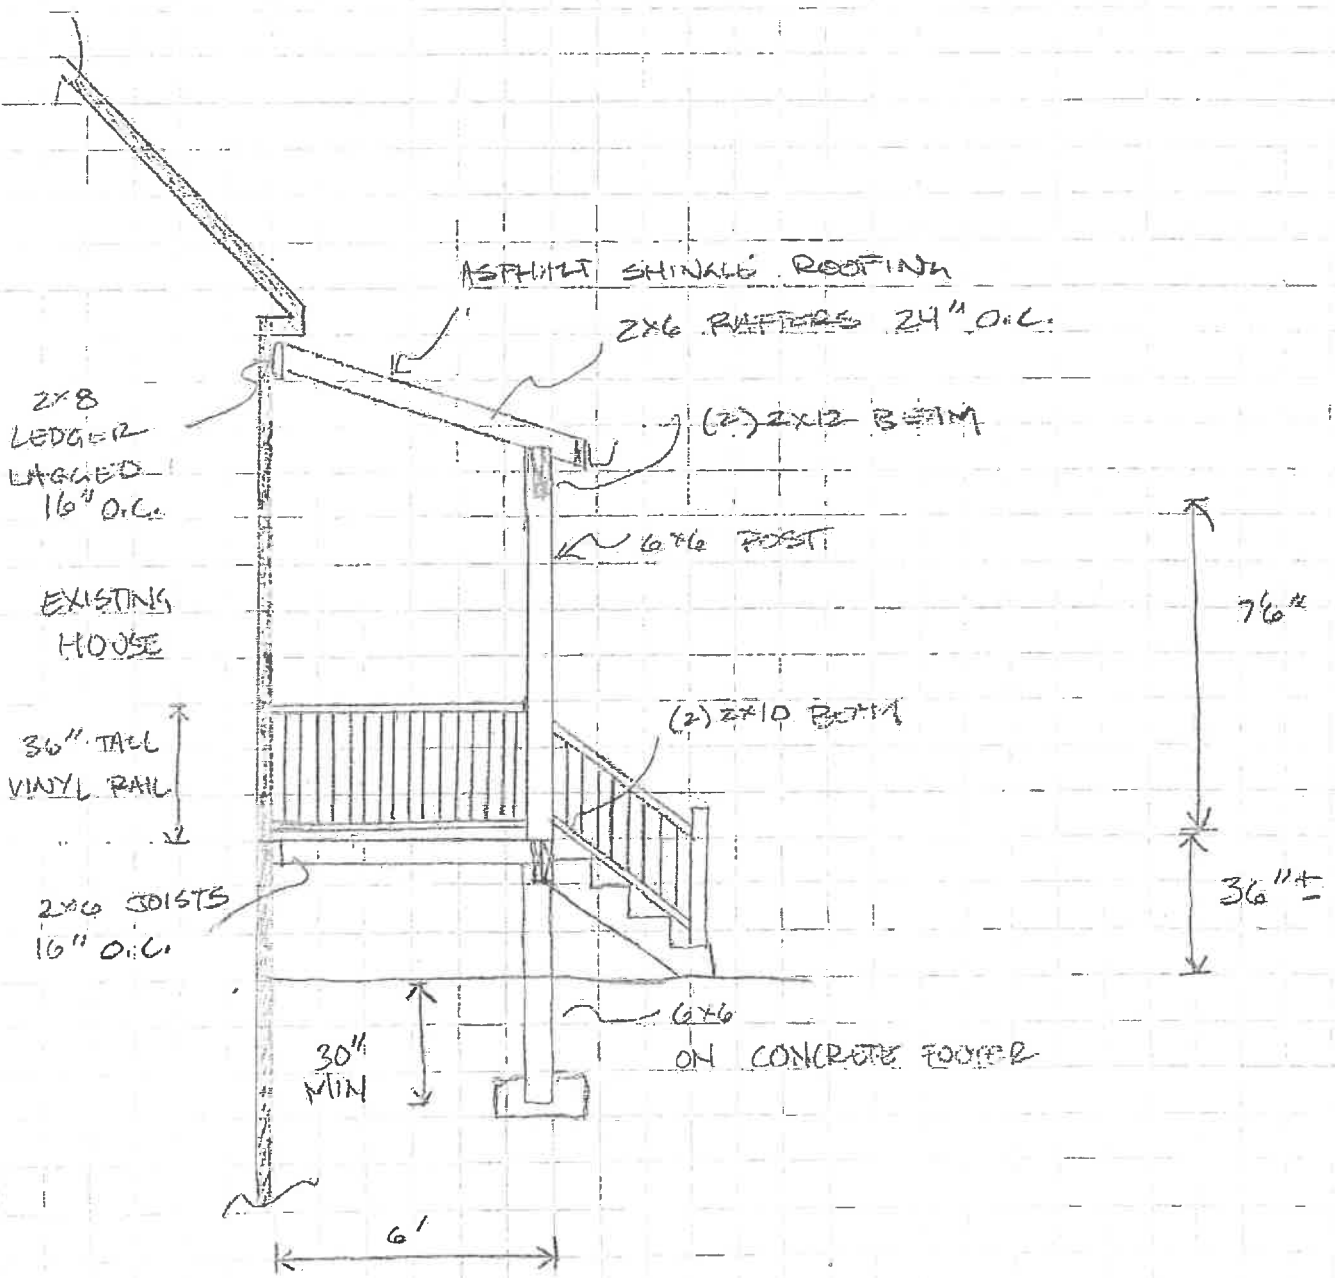 ASPHALT SHINGLE ROOFING
2X6 RAFTERS 24" O.C.
2X8
LEDGER
LAGGED
16" O.C.
(2) 2X12 BEAM
6X6 POST
EXISTING
HOUSE
7'6"
36" TALL
VINYL RAIL
(2) 2X10 BEAM
36" ±
2X6 JOISTS
16" O.C.
6X6
ON CONCRETE FOOTER
30"
MIN
6'